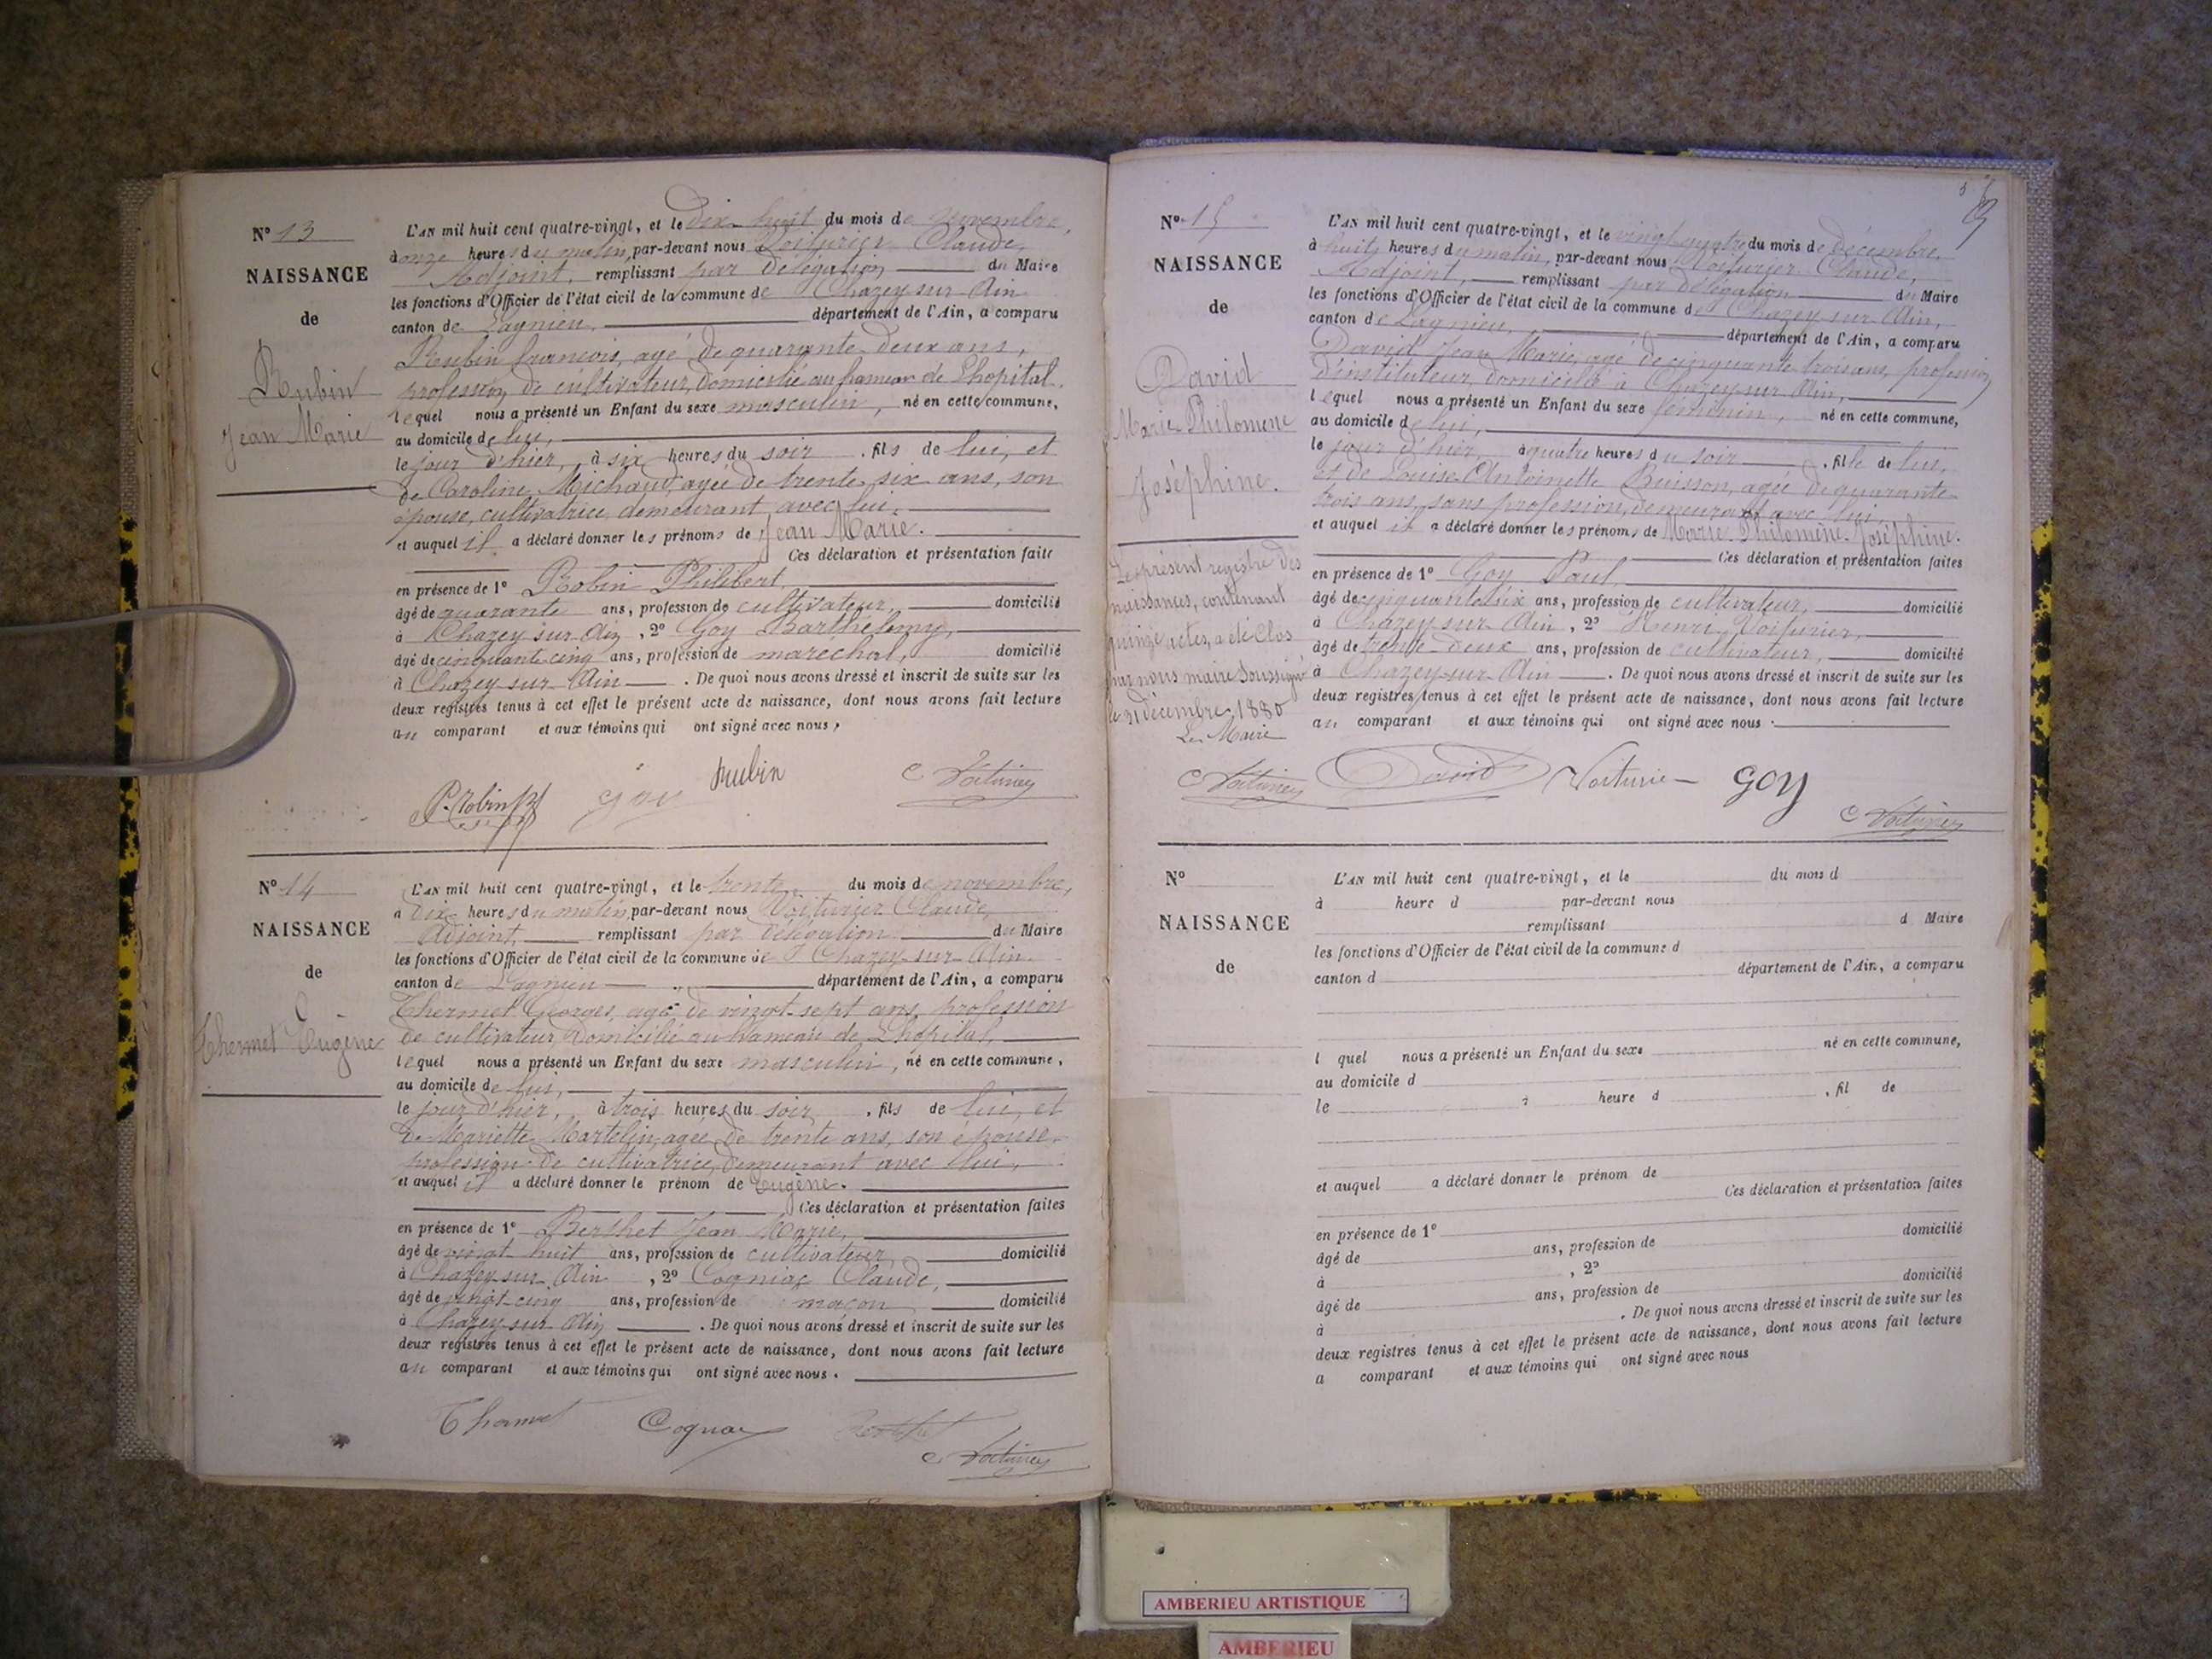 N° 13
NAISSANCE
de
Rubin
Jean Marie
L'AN mil huit cent quatre-vingt, et le dix-huit du mois de novembre,
à onze heures du matin, par-devant nous Voiturier Claude,
Adjoint, remplissant par délégation du Maire
les fonctions d'Officier de l'état civil de la commune de Chazey sur Ain
canton de Lagnieu, département de l'Ain, a comparu
Rubin francois, agé de quarante deux ans,
profession de cultivateur, domicilié au hameau de Lhopital,
lequel nous a présenté un Enfant du sexe masculin, né en cette commune,
au domicile de lui,
le jour d'hier, à six heures du soir, fils de lui, et
de Caroline Michaud, agée de trente six ans, son
épouse, cultivatrice, demeurant avec lui,
et auquel il a déclaré donner les prénoms de Jean Marie.
Ces déclaration et présentation faite
en présence de 1° Robin Philibert,
âgé de quarante ans, profession de cultivateur, domicilié
à Chazey sur Ain, 2° Goy Barthelemy,
âgé de cinquante cinq ans, profession de marechal, domicilié
à Chazey-sur-Ain. De quoi nous avons dressé et inscrit de suite sur les
deux registres tenus à cet effet le présent acte de naissance, dont nous avons fait lecture
au comparant et aux témoins qui ont signé avec nous,
P. Robin Goy Rubin C Voiturier
N° 14
NAISSANCE
de
Thermet Eugène
L'AN mil huit cent quatre-vingt, et le trente, du mois de novembre,
à dix heures du matin, par-devant nous Voiturier Claude,
Adjoint, remplissant par délégation du Maire
les fonctions d'Officier de l'état civil de la commune de Chazey-sur-Ain.
canton de Lagnieu département de l'Ain, a comparu
Thermet Georges, agé de vingt-sept ans, profession
de cultivateur, domicilié au hameau de Lhopital,
lequel nous a présenté un Enfant du sexe masculin, né en cette commune,
au domicile de lui,
le jour d'hier, à trois heures du soir, fils de lui, et
de Mariette Martelin, agée de trente ans, son épouse,
profession de cultivatrice, demeurant avec lui,
et auquel il a déclaré donner le prénom de Eugène.
Ces déclaration et présentation faites
en présence de 1° Berthet Jean Marie,
âgé de vingt huit ans, profession de cultivateur, domicilié
à Chazey-sur-Ain, 2° Cogniac Claude,
âgé de vingt-cinq ans, profession de maçon domicilié
à Chazey-sur-Ain. De quoi nous avons dressé et inscrit de suite sur les
deux registres tenus à cet effet le présent acte de naissance, dont nous avons fait lecture
au comparant et aux témoins qui ont signé avec nous.
Thermet Cognac Berthet
C Voiturier
N° 15
NAISSANCE
de
David
Marie-Philomène
Joséphine.
Le présent registre des
naissances, contenant
quinze actes, a été clos
par nous maire soussigné
le 31 décembre 1880
Le Maire
C Voiturier
L'AN mil huit cent quatre-vingt, et le vingt-quatre du mois de décembre,
à huit heures du matin, par-devant nous Voiturier Claude,
Adjoint, remplissant par délégation du Maire
les fonctions d'Officier de l'état civil de la commune de Chazey-sur-Ain,
canton de Lagnieu, département de l'Ain, a comparu
David Jean Marie, agé de cinquante trois ans, profession
d'instituteur, domicilié à Chazey-sur-Ain,
lequel nous a présenté un Enfant du sexe féminin, né en cette commune,
au domicile de lui,
le jour d'hier, à quatre heures du soir, fille de lui,
et de Louise Antoinette Buisson, agée de quarante
trois ans, sans profession, demeurant avec lui,
et auquel il a déclaré donner les prénoms de Marie-Philomène-Joséphine.
Ces déclaration et présentation faites
en présence de 1° Goy Paul,
âgé de cinquante six ans, profession de cultivateur, domicilié
à Chazey-sur-Ain, 2° Henri Voiturier,
âgé de trente-deux ans, profession de cultivateur, domicilié
à Chazey-sur-Ain. De quoi nous avons dressé et inscrit de suite sur les
deux registres tenus à cet effet le présent acte de naissance, dont nous avons fait lecture
au comparant et aux témoins qui ont signé avec nous.
David Voiturier Goy
C Voiturier
N°
NAISSANCE
de
L'AN mil huit cent quatre-vingt, et le du mois d
à heure d par-devant nous
remplissant d Maire
les fonctions d'Officier de l'état civil de la commune d
canton d département de l'Ain, a comparu
l quel nous a présenté un Enfant du sexe né en cette commune,
au domicile d
le à heure d , fil de
et auquel a déclaré donner le prénom de
Ces déclaration et présentation faites
en présence de 1°
âgé de ans, profession de domicilié
à , 2°
âgé de ans, profession de domicilié
à . De quoi nous avons dressé et inscrit de suite sur les
deux registres tenus à cet effet le présent acte de naissance, dont nous avons fait lecture
a comparant et aux témoins qui ont signé avec nous
AMBERIEU ARTISTIQUE
AMBERIEU